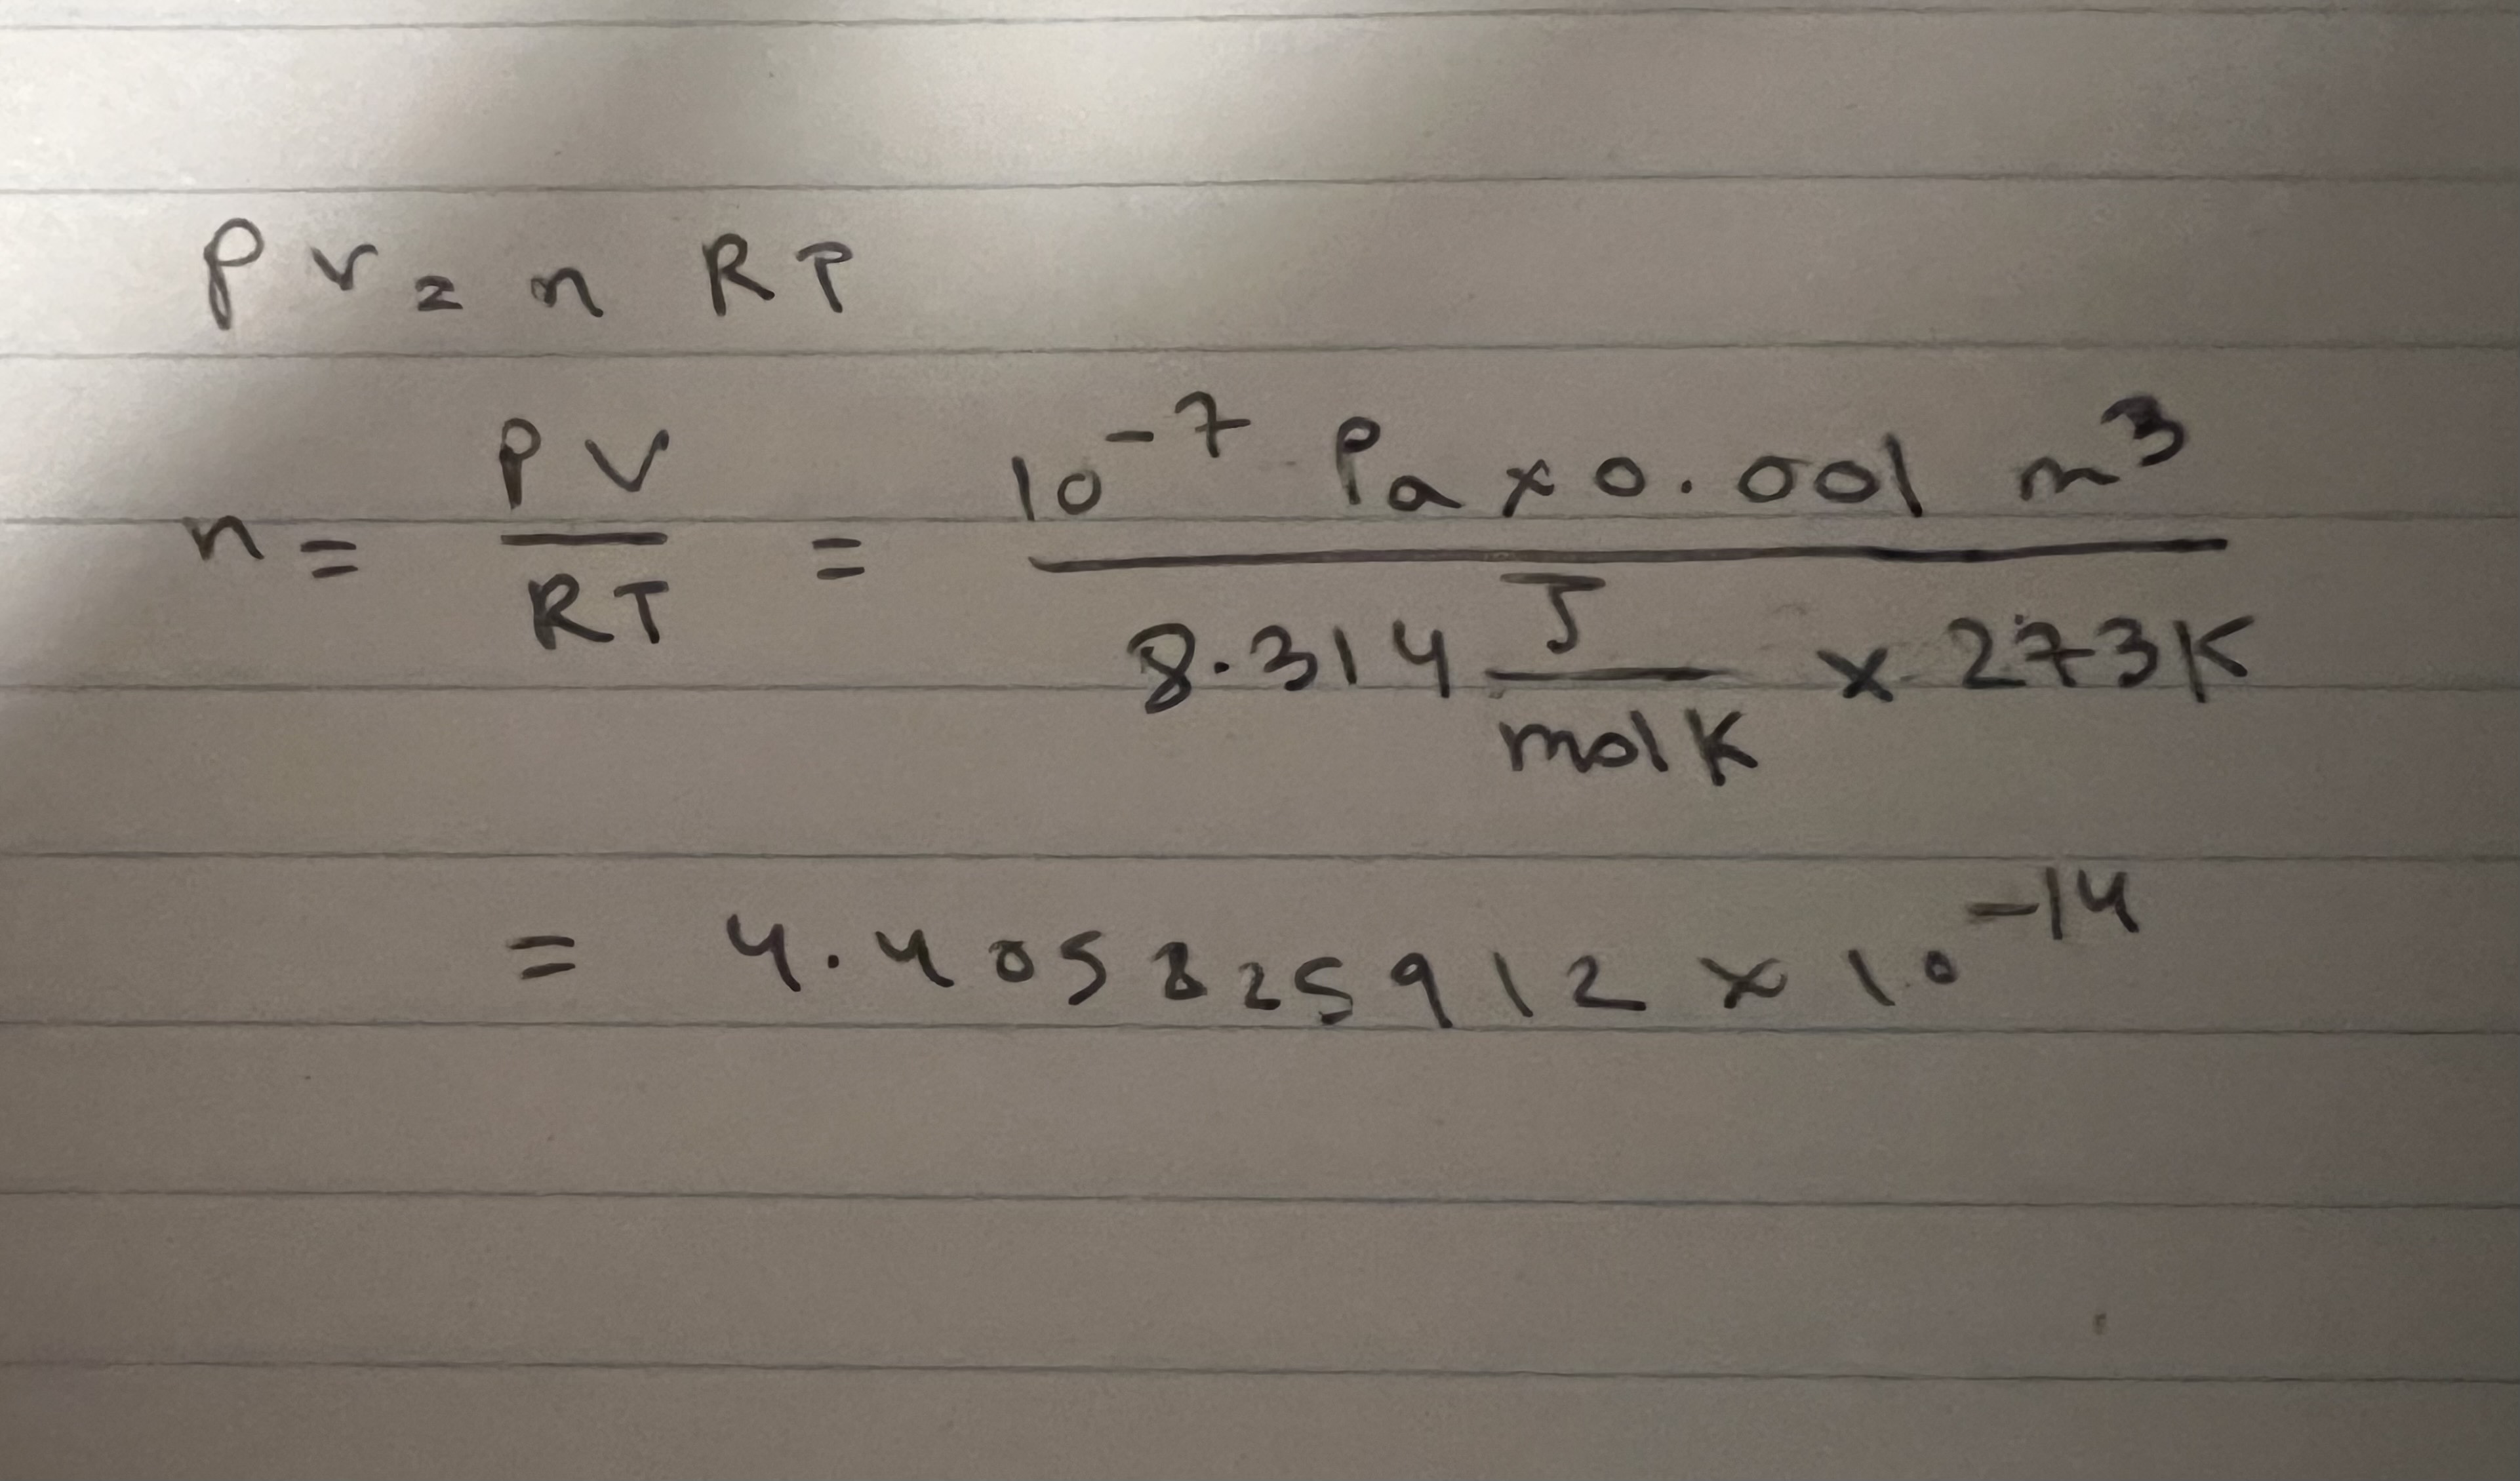 PV = n RT
n = PV / RT = 10^-7 Pa × 0.001 m^3 / 8.314 J / mol K × 273K
= 4.405825912 × 10^-14